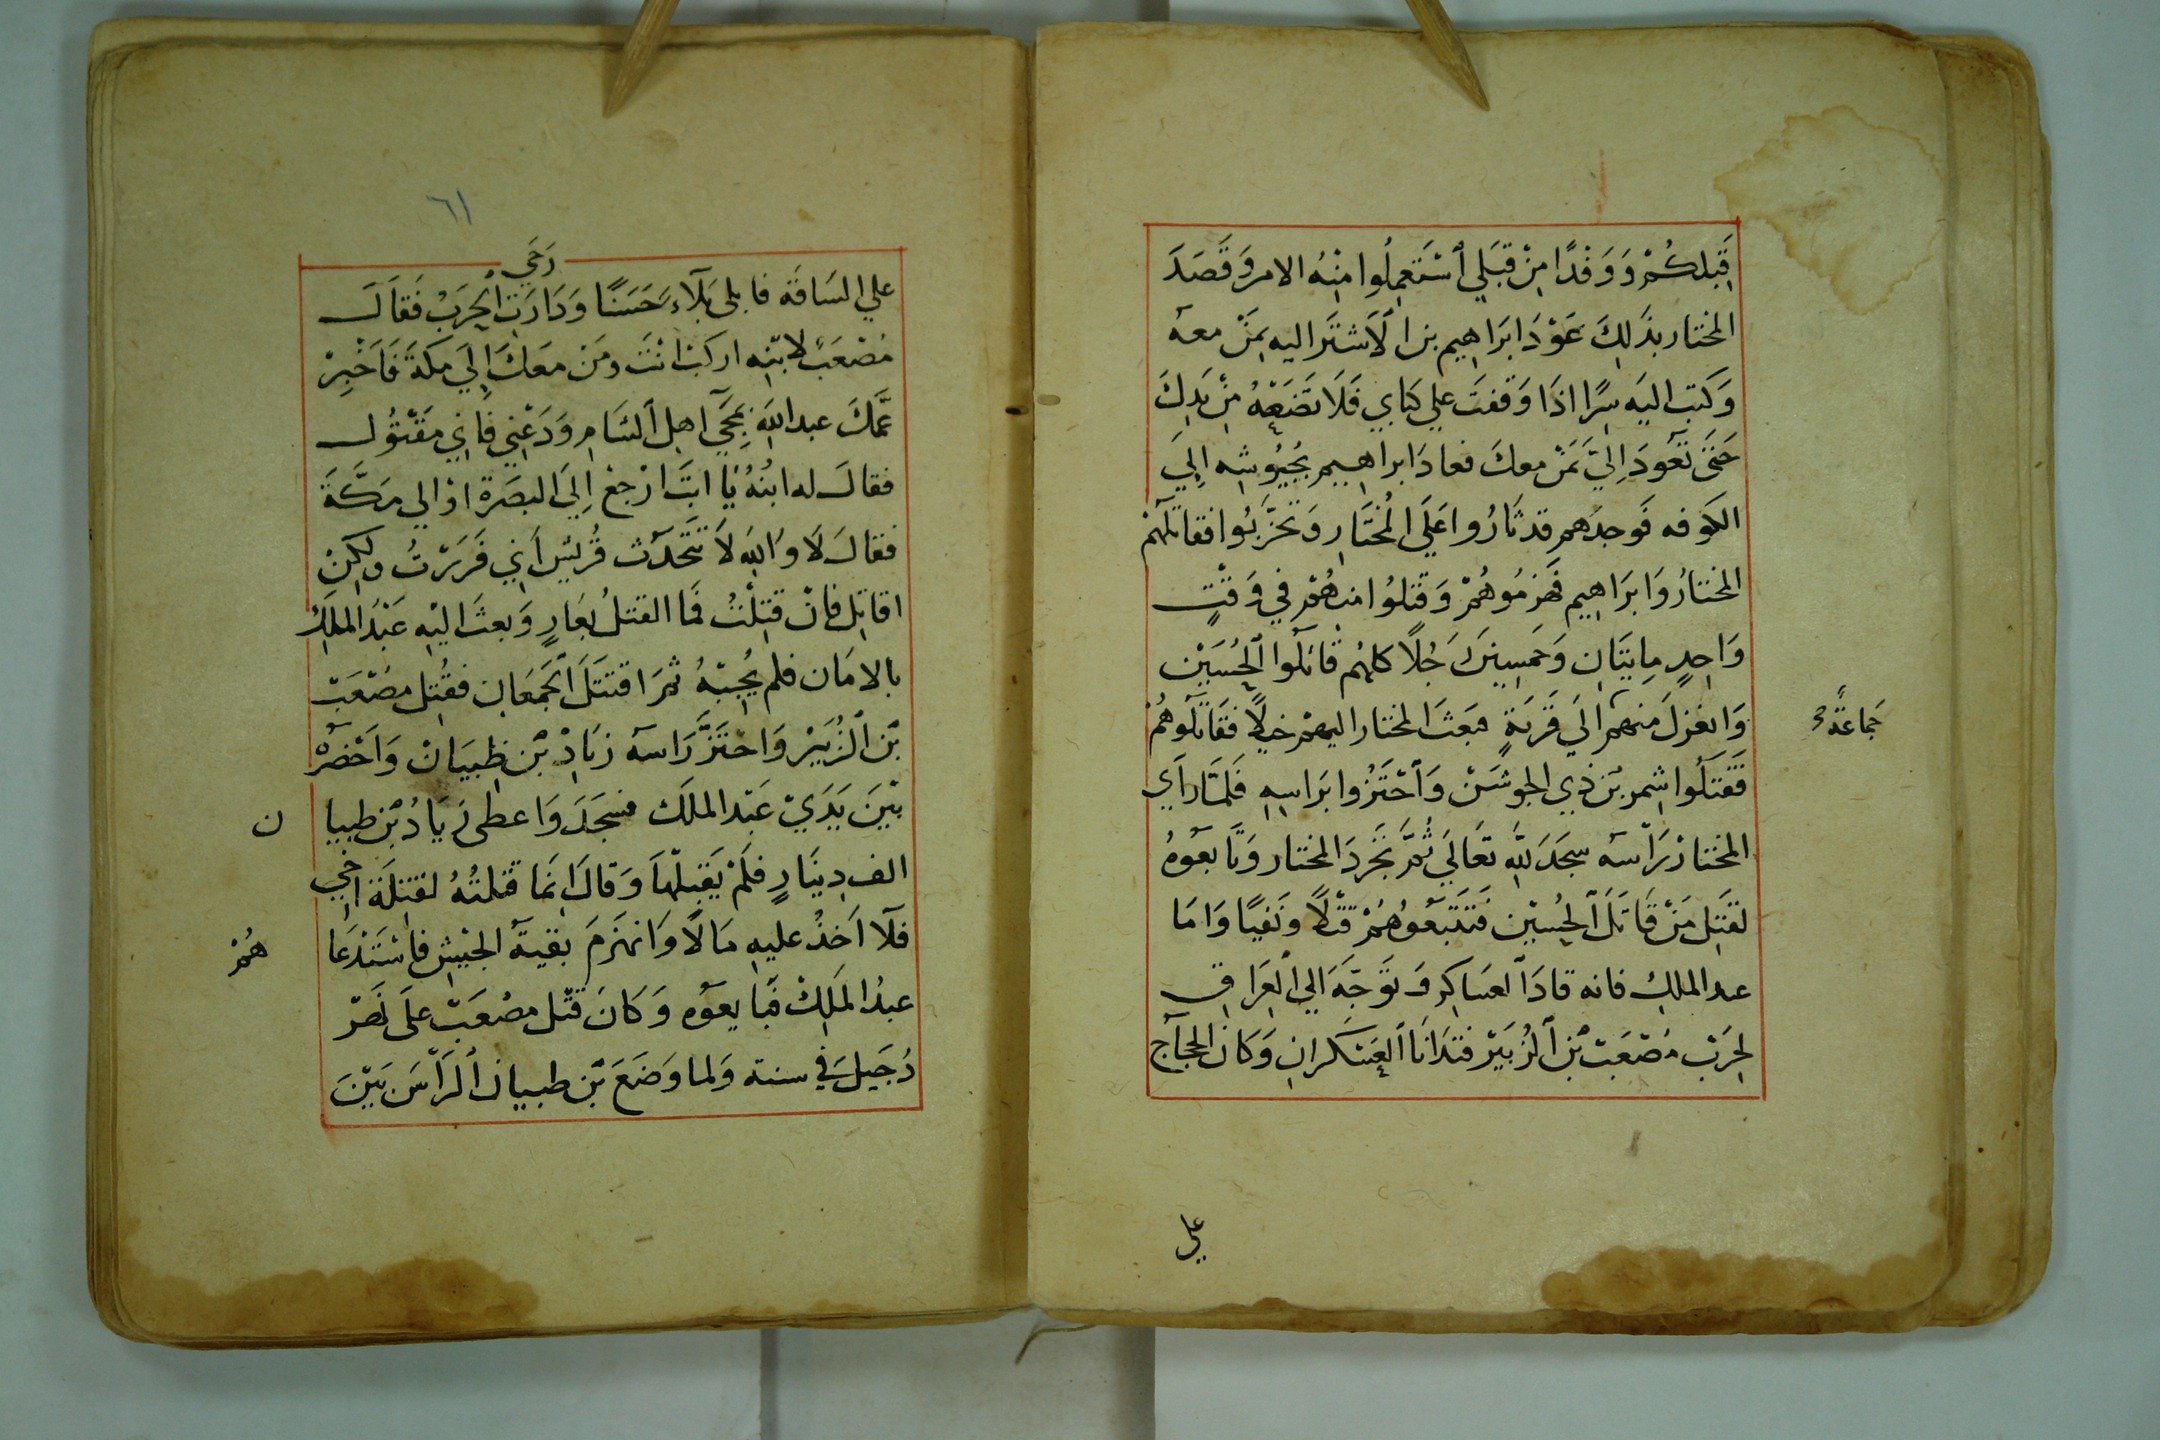 قَبِلكُمْ وَوَفدًا مِنْ قبَلِي اَسْتَعمِلُوا مِنْهُ الامر وَقَصَدَ
المختار بذَلِكَ عَوْدَ ابرَاهِيم بن الاَشتَر اليه بمَنْ معه
وَكتب اليَه سِرًا اذَا وَقفتَ علي كتابي فَلَا تضَعْهُ مِنْ يَدِكَ
حَتىَ تعَودَ اِليَّ بمَنْ معكَ فعادَ ابراهيم بجُيُوشِه اِليَ
الكوفه فَوجدَهم قد ثارُوا عَلَى المُختَارِ وَتحَزَّبُوا فقاتلهُمْ
المختارُ وَابرَاهِيم فَهزمُوهُمْ وَقتِلوُا منهُمْ في وَقتٍ
وَاحِدٍ مِايتَان وَخمَسِينَ رَجُلاً كلهُم قَاتلُوا الحُسَيْن
وَانعَزلَ منهم الَي قَريَةٍ فبَعثَ المختار اليهمْ خيلًا فقَاتلُوهُمْ
جَماعَةٌ
فَقَتلُوا شِمر بْن ذِي الجوشَنْ وَاَحْتَزُوا بَرَاسِهِ فَلمَّا رَاَي
المختارُ رَاسَه سجَدَ لِلَّهِ تعَالَي ثُمَّ تجَردَ المختار وَتَابعَوهُ
لقَتِل مَنْ قَاتَلَ الحُسيْن فَتَتَبعَوُهُمْ قَتْلاً وَنَفيًا وَامَا
عبد الملِكِ فانه قادَ العسَاكِر وَتوَجَّهَ الي العِرَاقِ
لحِرَبْ مُصْعَبْ بْن الزُبَيْر فتدَانَا العَسْكَرانِ وَكَانَ الحجَاج
علي
٦١
علي السَاقَه فابلى بَلَآءً حَسَنًا وَدَارَتِ رَحَي الحَربْ فَقاَلَ
مُصْعَبٌ لابنِه اركَبْ انْتَ وَمَنْ معَكَ اِليَ مَكةَ فَاَخبِرْ
عَمَّكَ عبد اللَّهِ بمجَي اهِل الشَامِ وَدَعْنِي فاِنِي مَقْتوُل
فقالَ له ابنُهُ يَا ابتَ ارْجعْ اِليَ البصَرة اوْ الي مَكَّةَ
فقالَ لَا وَاللَّهِ لاَ تتَحَدَّث قُريشُ اَنِي فَرَرْتُ وَلكِنْ
اقاتِل فانْ قتِلْتُ فمَا القتلُ بعَارٍ وَبعثَ اليْهِ عَبْدُ الملِكُ
بالامَان فلم يُجِبْهُ ثم َاقتتَلَ الجَمعَانِ فقُتِل مصْعَبْ
بْن الزُبَيْر وَاحْتَزَّ رَاسَه زيَادْ بْن ظِبيَانْ وَاَحْضَرهُ
بْينَ يَدَيْ عَبْد الملَك فسجَدَ وَاعطى زيَادُ بْن ظبيا
ن
الف دِينَارٍ فلَمْ يَقبِلْهَا وَقالَ اِنمَا قتلتُهُ لقتِلَة اَخِي
فَلاَ اَخذُ عليهِ مَالاً وَانهزَمَ بقيةُ الجَيشِ فاسْتَدعَا
هُمْ
عبدُ المَلِكْ فبَايعَوه وَكَانَ قتْل مصْعَبْ علَى نَهرْ
دُجَيلَ في سنته وَلما وَضَعَ بْن ظبيان الرَاسَ بَيْنَ